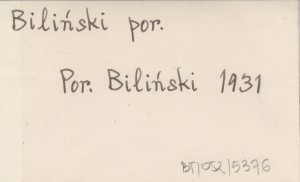 Biliński por.
Por. Biliński 1931
BT/052/5376